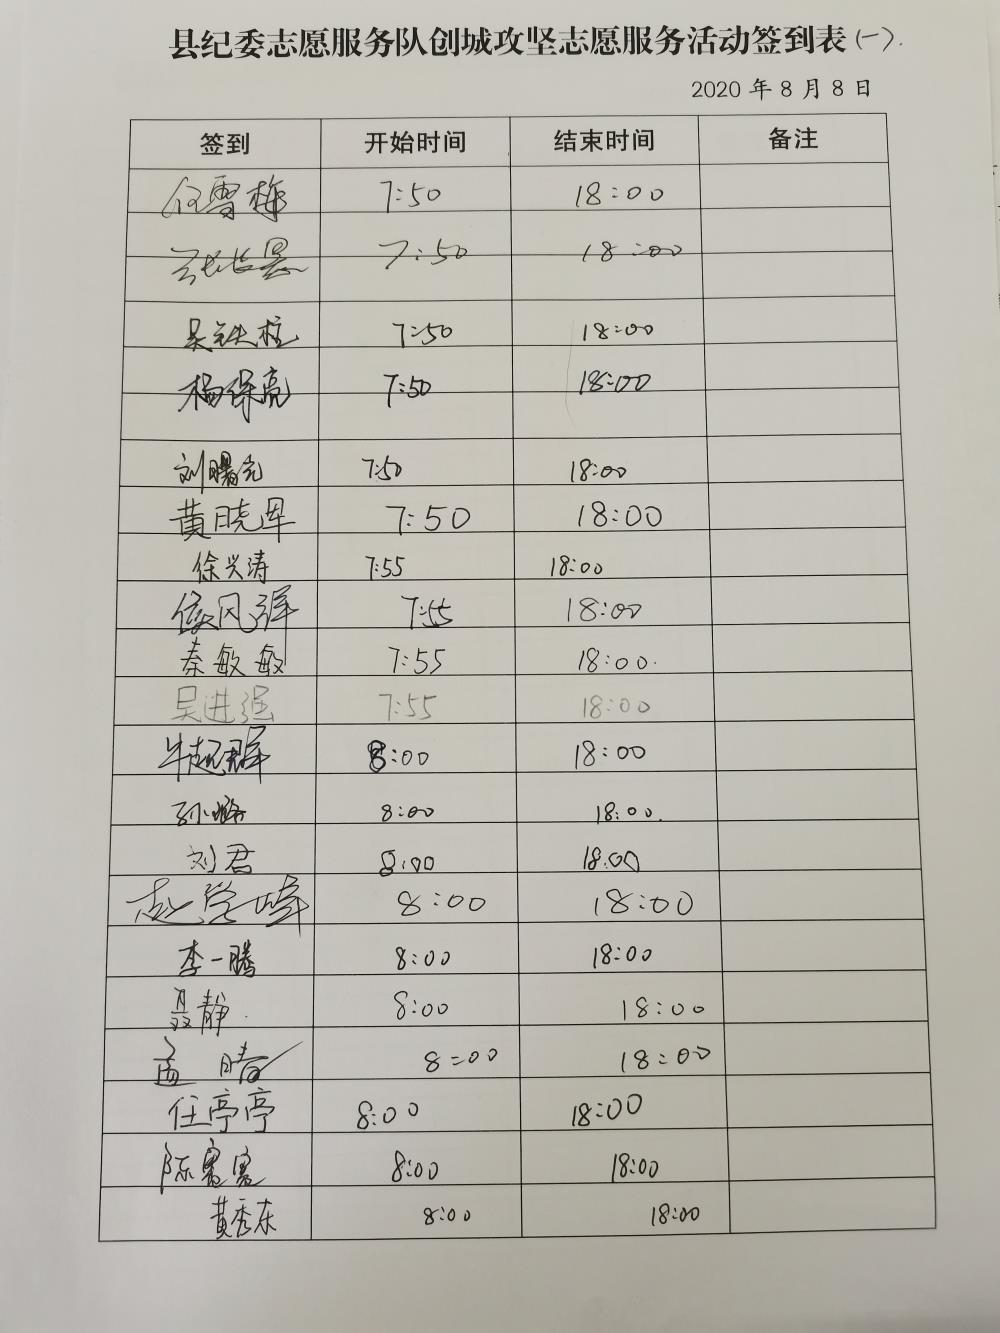 县纪委志愿服务队创城攻坚志愿服务活动签到表(一).
2020 年 8 月 8 日
签到 开始时间 结束时间 备注
任雪梅 7:50 18:00
7:50 18:00
吴铁柱 7:50 18:00
杨保亮 7:50 18:00
刘曙光 7:50 18:00
黄晓军 7:50 18:00
徐兴涛 7:55 18:00
侯风军 7:55 18:00
秦敏敏 7:55 18:00.
吴进强 7:55 18:00
牛起群 8:00 18:00
孙璐 8:00 18:00.
刘君 8:00 18:00
赵学峰 8:00 18:00
李一腾 8:00 18:00
聂静. 8:00 18:00
孟晴 8:00 18:00
任亭亭 8:00 18:00
陈蜜蜜 8:00 18:00
黄秀东 8:00 18:00